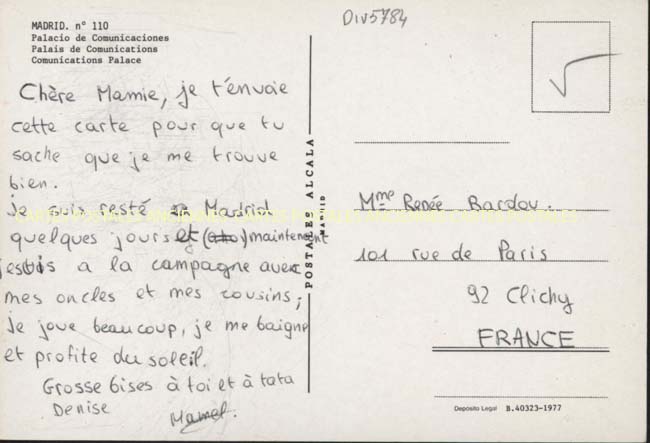 MADRID. nº 110
Palacio de Comunicaciones
Palais de Comunications
Comunications Palace
Div5784
Chère Mamie, je t'envoie
cette carte pour que tu
sache que je me trouve
bien.
Je suis resté à Madrid
quelques jours et maintenent
je suis a la campagne avec
mes oncles et mes cousins;
Je joue beaucoup, je me baigne
et profite du soleil.
Grosse bises à toi et à tata
Denise
POSTALES ALCALA
MADRID
Mme Renée Bardou.
101 rue de Paris
92 Clichy
FRANCE
Deposito Legal B.40323-1977